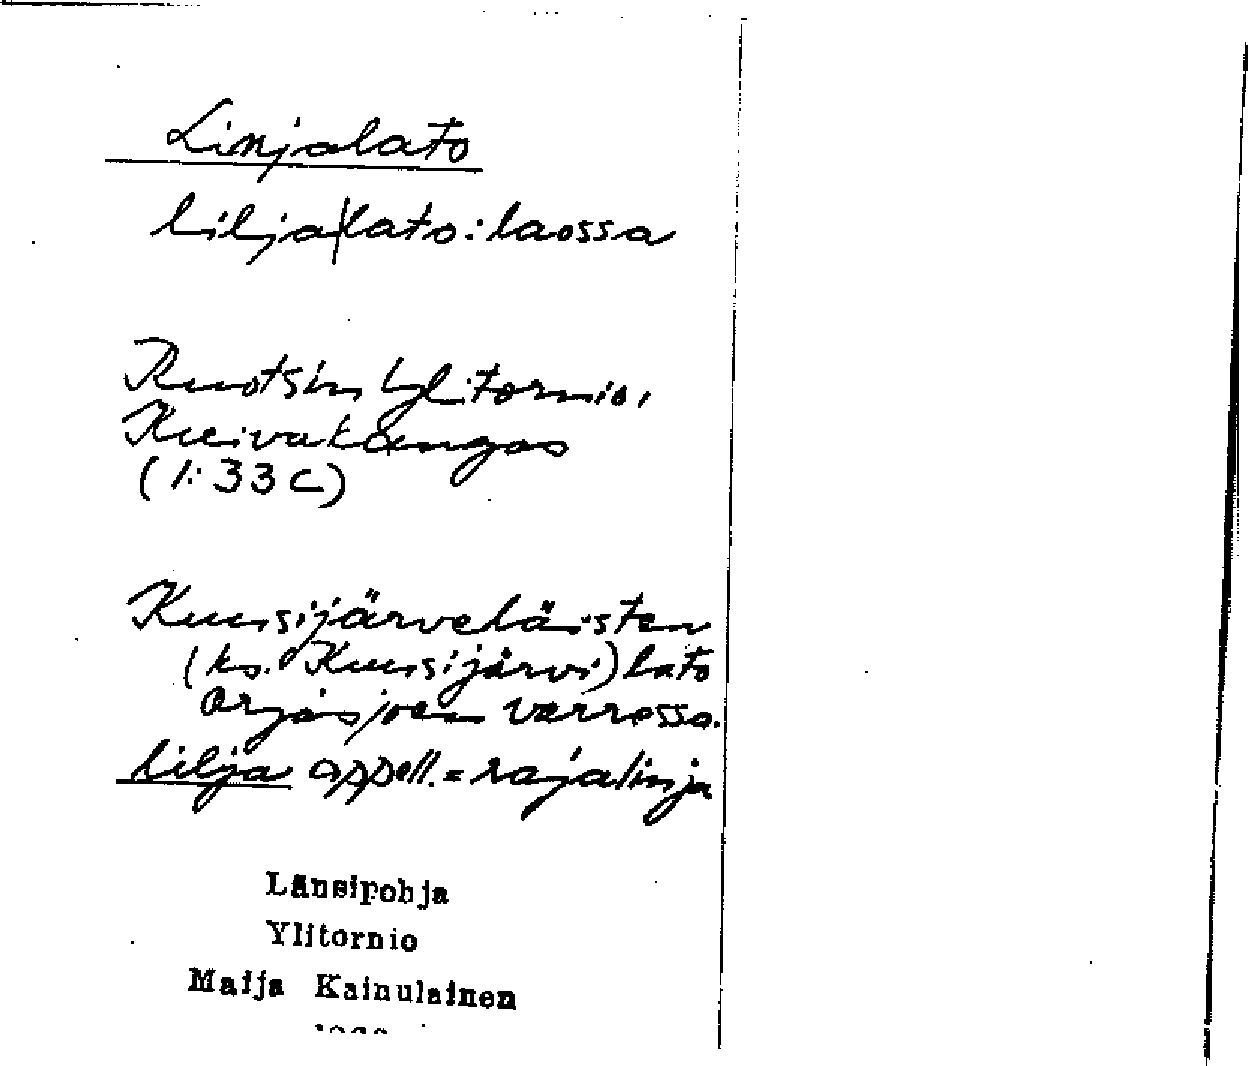 Linjalato
lilja|lato: laossa
Ruotsin Ylitornio,
Kuivakangas
(1: 33 C)
Kuusijärveläisten
(ks. Kuusijärvi) lato
Orjasjoen varressa.
lilja appell. = rajalinja
Länsipohja
Ylitornio
Maija Kainulainen